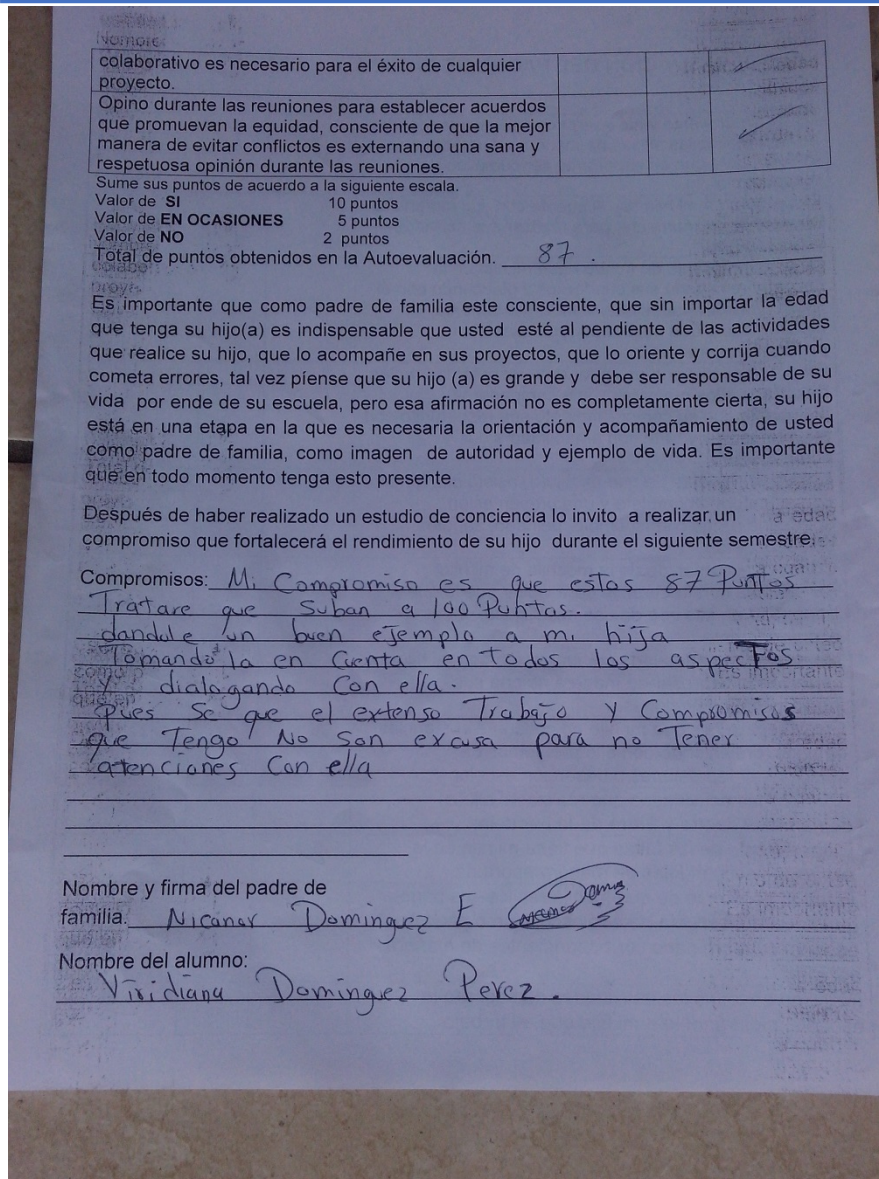 Nombre
colaborativo es necesario para el éxito de cualquier
proyecto.
Opino durante las reuniones para establecer acuerdos
que promuevan la equidad, consciente de que la mejor
manera de evitar conflictos es externando una sana y
respetuosa opinión durante las reuniones.
Sume sus puntos de acuerdo a la siguiente escala.
Valor de SI 10 puntos
Valor de EN OCASIONES 5 puntos
Valor de NO 2 puntos
Total de puntos obtenidos en la Autoevaluación. 87.
Es importante que como padre de familia este consciente, que sin importar la edad
que tenga su hijo(a) es indispensable que usted esté al pendiente de las actividades
que realice su hijo, que lo acompañe en sus proyectos, que lo oriente y corrija cuando
cometa errores, tal vez píense que su hijo (a) es grande y debe ser responsable de su
vida por ende de su escuela, pero esa afirmación no es completamente cierta, su hijo
está en una etapa en la que es necesaria la orientación y acompañamiento de usted
como padre de familia, como imagen de autoridad y ejemplo de vida. Es importante
que en todo momento tenga esto presente.
Después de haber realizado un estudio de conciencia lo invito a realizar un
compromiso que fortalecerá el rendimiento de su hijo durante el siguiente semestre.
Compromisos: Mi Compromiso es que estos 87 Puntos
Tratare que Suban a 100 Puntos.
dandole un buen eJemplo a mi hiJa
Tomandola en Cuenta en Todos los aspecTos
y dialogando Con ella.
Pues Se que el extenso Trabajo y Compromisos
que Tengo No Son excusa para no Tener
atenciones Con ella
Nombre y firma del padre de
familia. Nicanor Dominguez E
Nombre del alumno:
Viridiana Dominguez Perez.